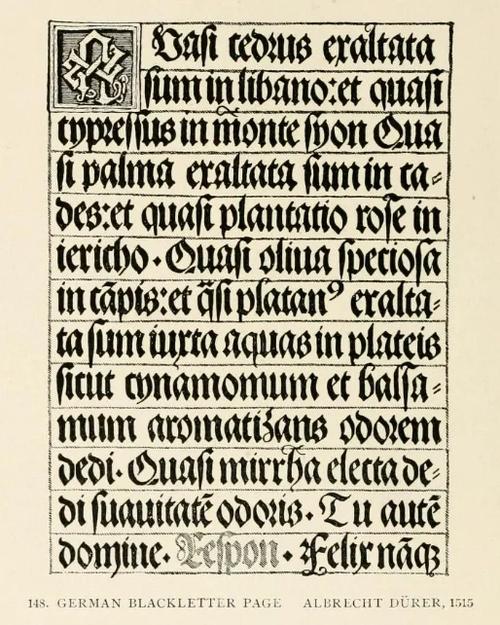 QVasi cedrus exaltata
sum in libano:et quasi
cypressus in monte syon Qua
si palma exaltata sum in ca=
des:et quasi plantatio rose in
iericho · Quasi oliua speciosa
in cāpis:et q̄si platanꝰ exalta=
ta sum iuxta aquas in plateis
sicut cynamomum et balsa=
mum aromatizans odorem
dedi · Quasi mirrha electa de=
di suauitatē odoris · Tu autē
domine · Respon · Felix nāqꝫ
148. GERMAN BLACKLETTER PAGE ALBRECHT DÜRER, 1515